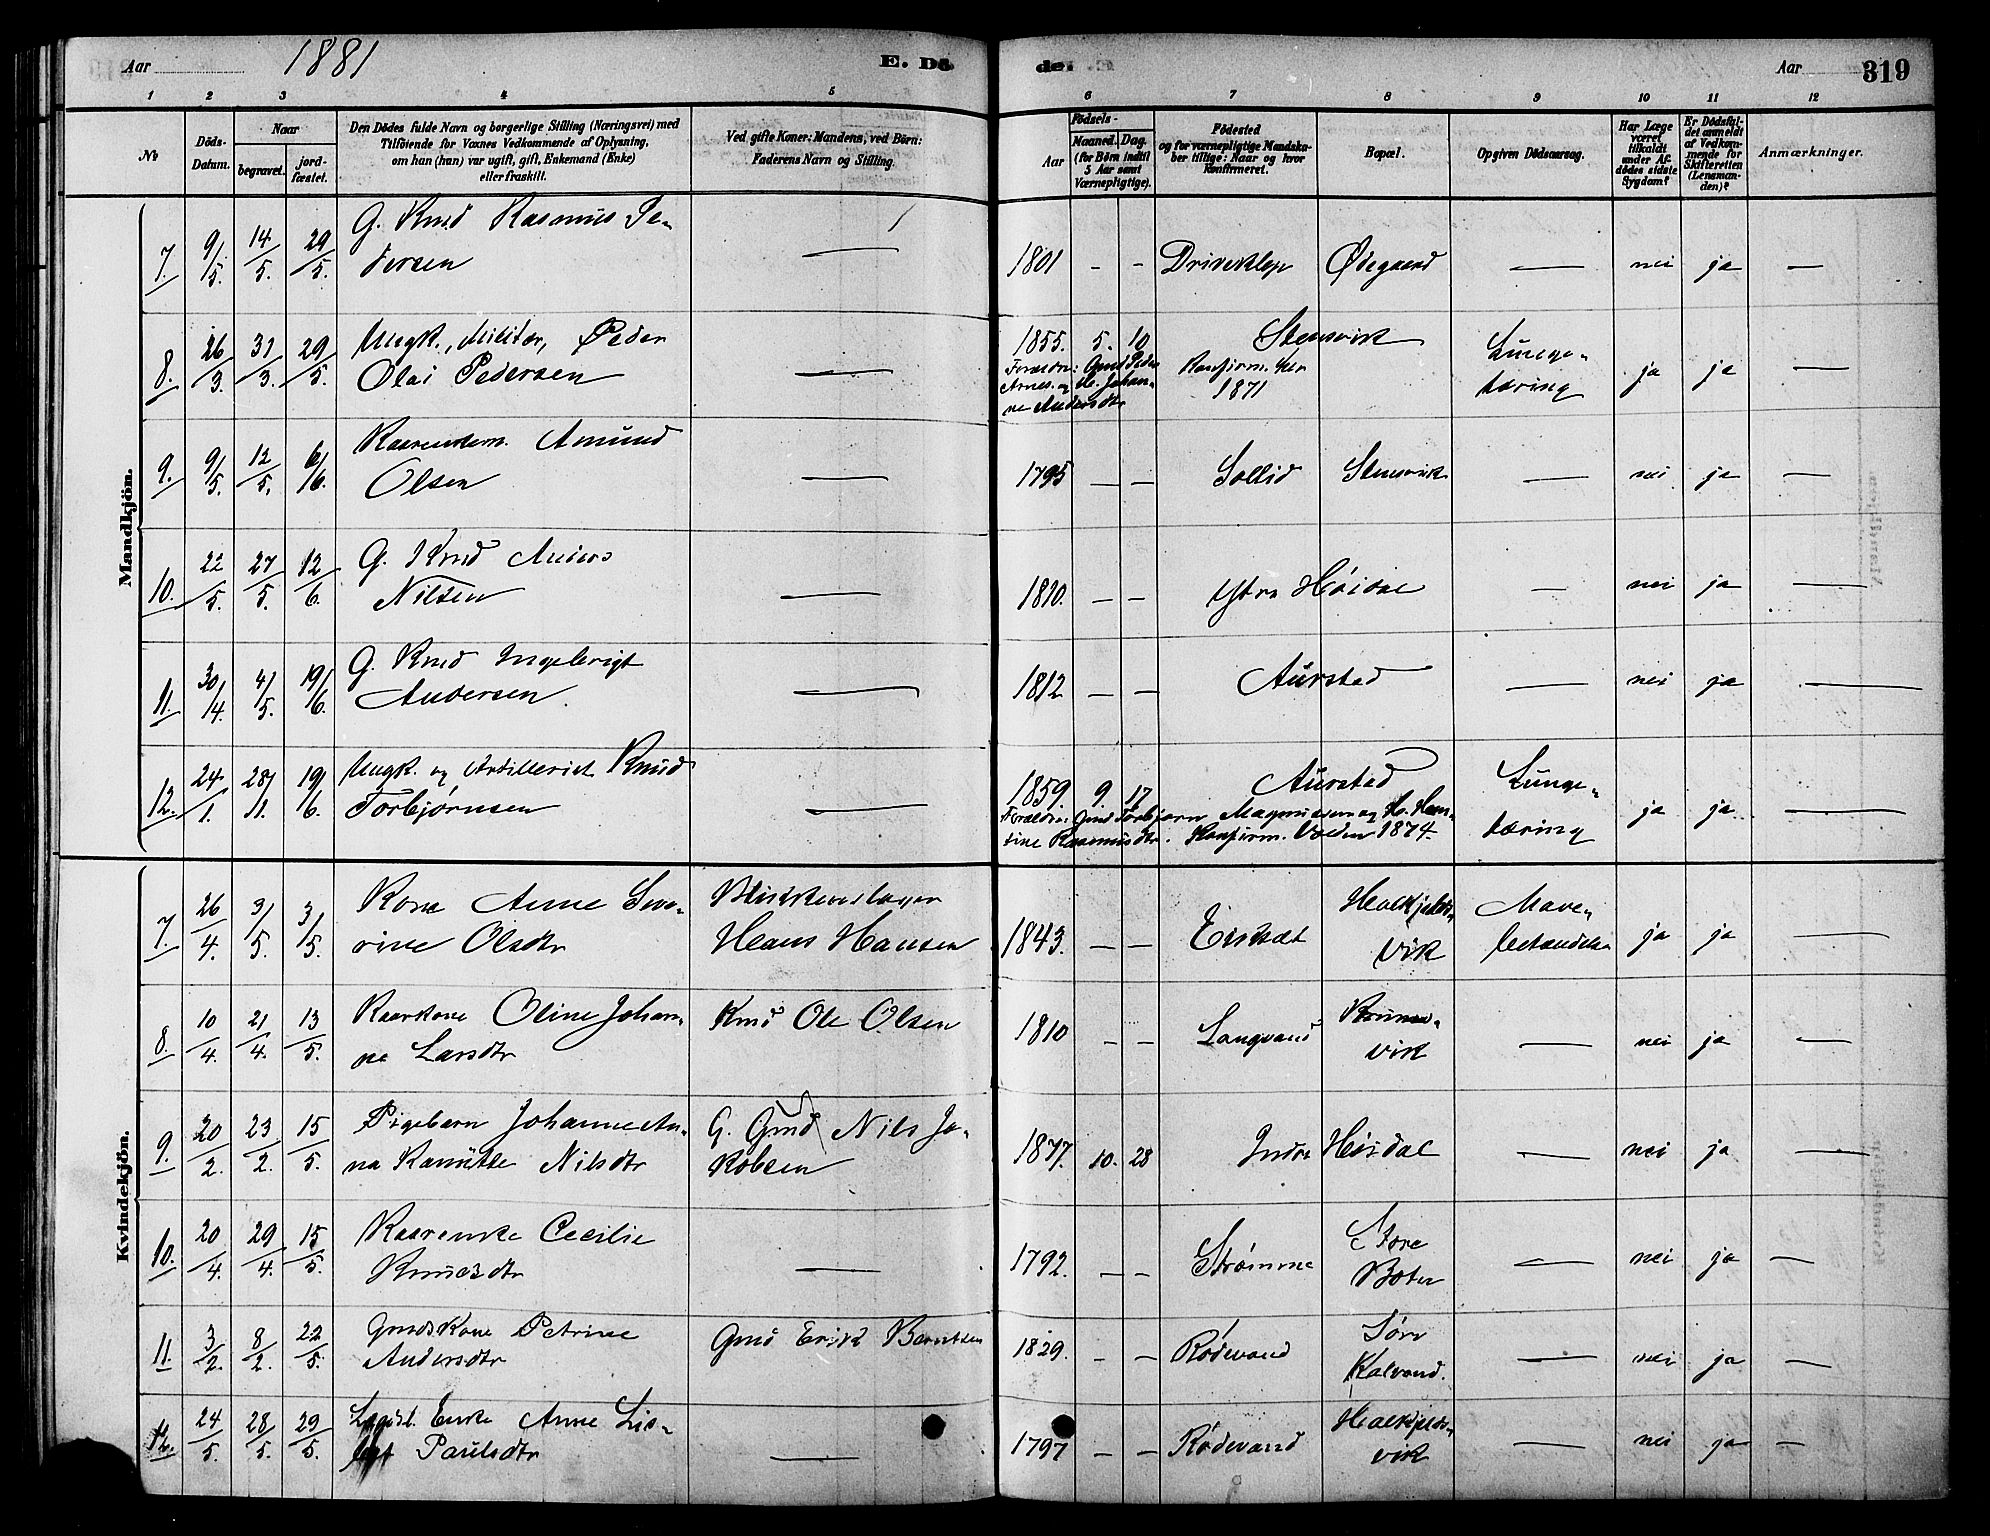 Aar 1881 E. Dö-
de. Aar 319
1 2 3 4 5 6 7 8 9 10 11 12
No. Döds-Datum. Naar begravet. jordfæstet.
Den Dödes fulde Navn og borgerlige Stilling (Næringsvei) med
Tilföiende for Voxnes Vedkommende af Oplysning,
om han (hun) var ugift, gift, Enkemand (Enke)
eller fraskilt.
Ved gifte Koner: Mandens, ved Börn:
Faderens Navn og Stilling.
Födsels-
Aar Maaned. Dag.
(for Börn indtil
5 Aar samt
Værnepligtige).
Födested
og for værnepligtige Mandska-
ber tillige: Naar og hvor
konfirmeret.
Bopæl.
Opgiven Dödsaarsag.
Har Læge
været
tilkaldt
under Af-
dödes sidste
Sygdom?
Er Dödsfal-
det anmeldt
af Vedkom-
mende for
Skifteretten
(Lensman-
den)?
Anmærkninger.
Mandkjön.
7. 9/5. 14/5. 29/5. G. Kmd Rasmus Pe-
dersen — 1801 - - Driveklep Ødegaard — nei ja —
8. 26/3. 31/3. 29/5. Ungk., Militær, Peder
Olai Pedersen — 1855. 5. 10 Stensvik Lunge-
tæring ja ja —
Forældre: Gmd Peder
Arnes. og H. Johan-
ne Andersdtr
Konfirm. her
1871
9. 9/5. 12/5. 6/6. Kaarenkem. Amund
Olsen — 1795 — — Sollid Stensvik — nei ja —
10. 22/5. 27/5. 12/6. G. Kmd Anders
Nilsen — 1810. — — Ytre Høidal — nei ja —
11. 30/4. 4/5. 19/6. G. Kmd Ingebrigt
Andersen. — 1812 — — Aurstad — nei ja —
12. 24/1. 28/1. 19/6. Ungk. og Artillerist Knud
Torbjørnsen — 1859. 9. 17 Aurstad Lunge-
tæring ja ja —
Forældre: Gmd Torbjørn Magnussen og H.
Rasmusdtr. Konfirm. Volden 1874.
Kvindekjön.
7. 26/4. 3/5. 3/5. Kone Anne Seve-
rine Olsdtr Blikkenslager
Hans Hansen 1843. — — Eiksæt Halkjelds-
vik Mave-
betændelse ja ja —
8. 10/4. 21/4. 13/5. Kaarkone Oline Johan-
ne Larsdtr Kmd Ole Olsen 1810 - - Langvand
vik — nei ja —
9. 20/2. 23/2. 15/5. Pigebarn Johanne An-
na Kamitte Nilsdtr G. Gmd Nils Ja-
kobsen 1877. 10. 28 Indre Høidal — nei ja —
10. 20/4. 29/4. 15/5. Kaarenke Cecilie
Knudsdtr — 1792. — — Strømme Store
Boter — nei ja —
11. 3/2. 8/2. 22/5. Gmdskone Petrine
Andersdtr Gmd Erik Berntsen 1829. - - Rødevand Søre
Kalvand. — nei ja —
12. 24/5. 28/5. 29/5. Enke Anne Lis-
bet Paulsdtr — 1797 - - Rødevand Halkjelds-
vik — nei ja —